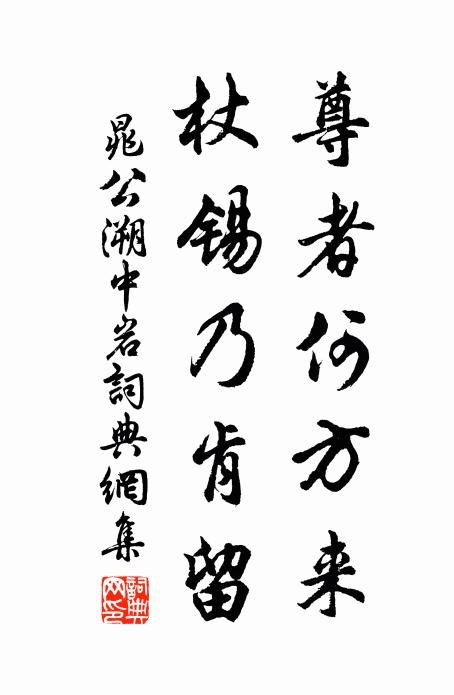 尊者何方来
杖锡乃肯留
晁公溯中岩詞典網集
詞典網印